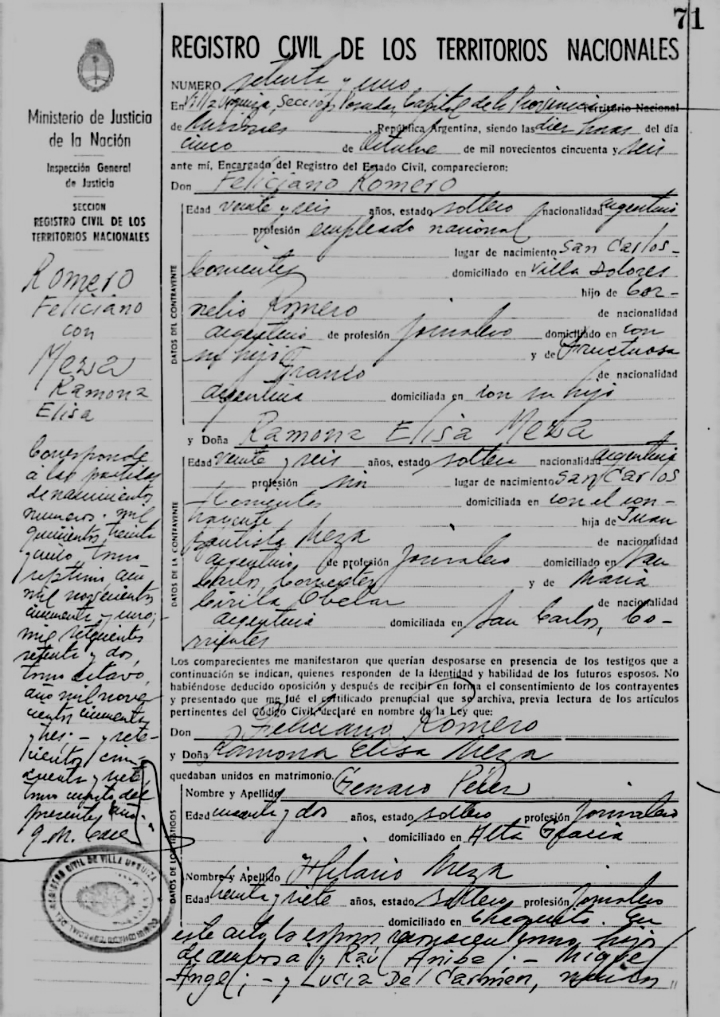 71
REGISTRO CIVIL DE LOS TERRITORIOS NACIONALES
Ministerio de Justicia
de la Nación
Inspección General
de Justicia
SECCION
REGISTRO CIVIL DE LOS
TERRITORIOS NACIONALES
Romero
Feliciano
con
Meza
Ramona
Elisa
Corresponde
a las partidas
de nacimientos
numeros: mil
tomo
septimo año
mil novecientos
cincuenta y uno;
mil setecientos
setenta y dos,
tomo octavo,
año mil nove
cientos cincuenta
y tres; - y sete
cientos cin
cuenta y siete,
tomo cuarto del
presente año.
REGISTRO CIVIL DE VILLA URQUIZA
NUMERO setenta y uno
En Urquiza, Sección Posadas, Capital de la Provincia Territorio Nacional
de Misiones, República Argentina, siendo las diez horas del día
cinco de Octubre de mil novecientos cincuenta y seis
ante mí, Encargado del Registro del Estado Civil, comparecieron:
Don Feliciano Romero
DATOS DEL CONTRAYENTE
Edad veinte y seis años, estado soltero nacionalidad argentino
profesión empleado nacional
lugar de nacimiento San Carlos-
Corrientes domiciliado en Villa Dolores
hijo de Cor-
nelio Romero de nacionalidad
argentino de profesión Jornalero domiciliado en con
su hijo y de Fructuosa
Franco de nacionalidad
argentina domiciliada en con su hijo
y Doña Ramona Elisa Meza
DATOS DE LA CONTRAYENTE
Edad veinte y seis años, estado soltera nacionalidad argentina
profesión sin lugar de nacimiento San Carlos
Corrientes domiciliada en con el con-
trayente hija de Juan
Bautista Meza de nacionalidad
argentino de profesión Jornalero domiciliado en San
Carlos, Corrientes y de Maria
Cirila Obelar de nacionalidad
argentina domiciliada en San Carlos, Co-
rrientes
Los comparecientes me manifestaron que querían desposarse en presencia de los testigos que a
continuación se indican, quienes responden de la identidad y habilidad de los futuros esposos. No
habiéndose deducido oposición y después de recibir en forma el consentimiento de los contrayentes
y presentado que me fué el certificado prenupcial que se archiva, previa lectura de los artículos
pertinentes del Código Civil, declaré en nombre de la Ley que:
Don Feliciano Romero
y Doña Ramona Elisa Meza
quedaban unidos en matrimonio.
DATOS DE LOS TESTIGOS
Nombre y Apellido Genaro Perez
Edad cuarenta y dos años, estado soltero profesión Jornalero
domiciliado en Alta Gracia
Nombre y Apellido Hilario Meza
Edad veinte y siete años, estado soltero profesión Jornalero
domiciliado en Chequito. En
este acto los esposos reconocen como hijo
de ambos a Raul Anibal; - Miguel
Angel; - y Lucia Del Carmen,